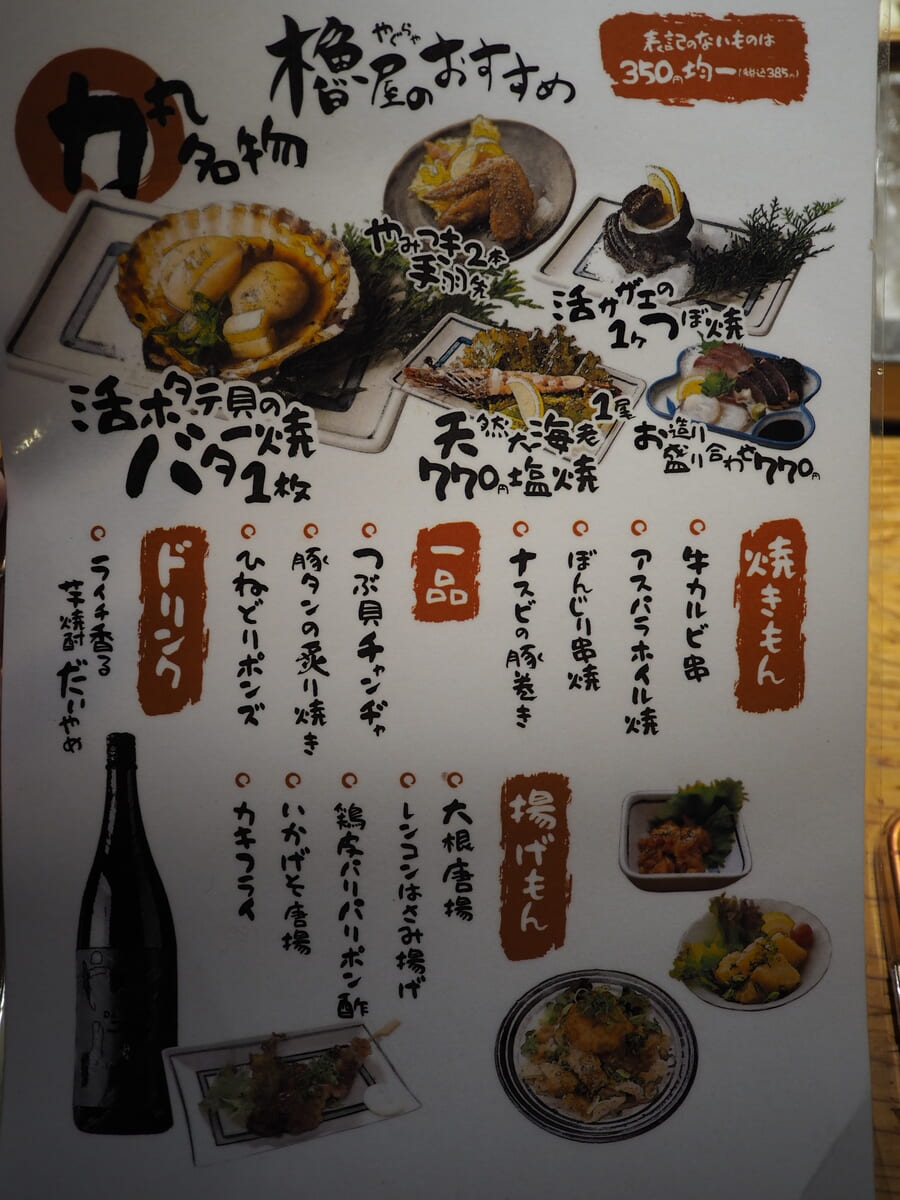 櫓屋のおすすめ
やぐらや
表記のないものは
350円均一(税込385円)
力丸
名物
やみつき2本
手羽先
活サザエの
1ケつぼ焼
活ホタテ貝の
バター焼
1枚
天然大海老1尾
770円塩焼
お造り
盛り合わせ770円
焼きもん
牛カルビ串
アスパラホイル焼
ぼんじり串焼
ナスビの豚巻き
一品
つぶ貝チャンヂャ
豚タンの炙り焼き
ひねどりポンズ
ドリンク
ライチ香る
芋焼酎 だいやめ
揚げもん
大根唐揚
レンコンはさみ揚げ
鶏皮パリパリポン酢
いかげそ唐揚
カキフライ